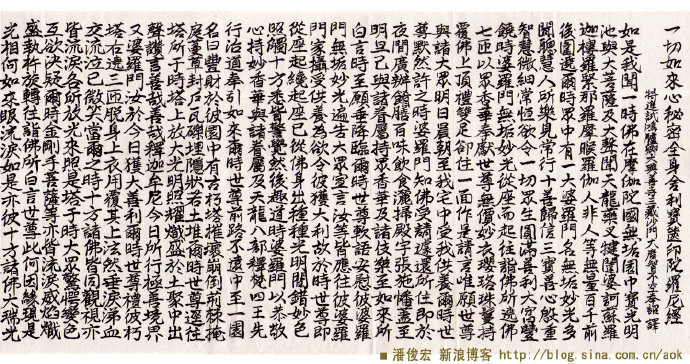 一切如來心秘密全身舍利寶篋印陀羅尼經
特進試鴻臚卿大興善寺三藏沙門大廣智不空奉詔譯
如是我聞一時佛在摩伽陀國無垢園中寶光明
池與大菩薩及大聲聞天龍藥叉犍闥婆訶蘇羅
迦樓羅緊那羅摩睺羅伽人非人等無量百千前
後圍遶爾時眾中有一大婆羅門名無垢妙光多
聞聰慧人所樂見常行十善歸信三寶善心殷重
智慧微細常恒欲令一切眾生圓滿善利大富豐
饒時婆羅門無垢妙光從座而起往詣佛所遶佛
七匝以眾香華奉獻世尊無價妙衣瓔珞珠鬘持
覆佛上頂禮雙足卻住一面作是請言唯願世尊
與諸大眾明日晨朝至我宅中受我供養爾時世
尊默然許之時婆羅門知佛受請遽還所住即於
夜間廣辦餚膳百味飲食灑掃殿宇張施幡蓋至
明旦已與諸眷屬持眾香華及諸伎樂至如來所
白言時至願垂降臨爾時世尊軟語安慰彼婆羅
門無垢妙光遍告大眾宣言汝等皆應往彼婆羅
門家攝受供養為欲令彼獲大利故於時世尊即
從座起纔起座已從佛身出種種光明間錯妙色
照觸十方悉皆警覺然後趣道時婆羅門以恭敬
心持妙香華與諸眷屬及天龍八部釋梵四王先
行治道奉引如來爾時世尊前路不遠中至一園
名曰豐財於彼園中有古朽塔摧壞崩倒荊棘掩
庭蔓草封戶瓦礫埋隱狀若土堆爾時世尊逕往
塔所于時塔上放大光明照耀熾盛於土聚中出
聲讚言善哉善哉釋迦牟尼今日所行極善境界
又婆羅門汝於今日獲大善利爾時世尊禮彼朽
塔右遶三匝脫身上衣用覆其上泫然垂淚涕血
交流泣已微笑當爾之時十方諸佛皆同觀視亦
皆流淚各所放光來照是塔于時大眾驚愕變色
互欲決疑爾時金剛手菩薩等亦皆流淚威焰熾
盛執杵旋轉往詣佛所白言世尊此何因緣現是
光相何如來眼流淚如是亦彼十方諸佛大瑞光
■ 潘俊宏 新浪博客 http://blog.sina.com.cn/aok